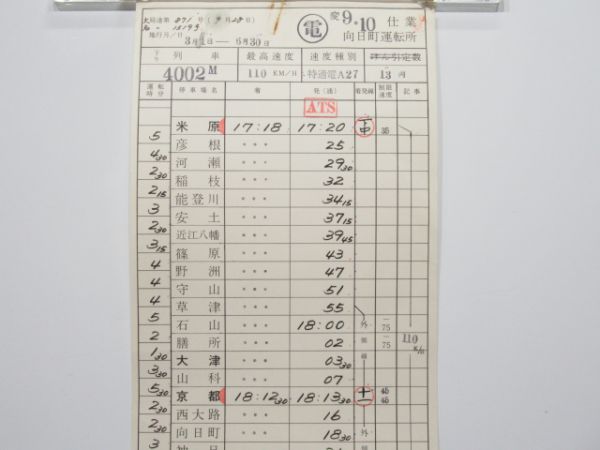 電 変9.10 仕業
向日町運転所
3月1日 ― 6月30日
列車 最高速度 速度種別 けん引定数
4002M 110 KM/H 特通電A27 13 両
運転時分 停車場名 着 発(通) 着発線 制限速度 記事
ATS
米原 17:18 17:20 中
5
彦根 ・・・ 25
4 30
河瀬 ・・・ 29 30
2 30
稲枝 ・・・ 32
2 15
能登川 ・・・ 34 15
3
安土 ・・・ 37 15
2 30
近江八幡 ・・・ 39 45
3 15
篠原 ・・・ 43
4
野洲 ・・・ 47
4
守山 ・・・ 51
4
草津 ・・・ 55
5
石山 ・・・ 18:00 外 75
2
膳所 ・・・ 02 75 110
1 30
大津 ・・・ 03 30
3 30
山科 ・・・ 07
5 30
京都 18:12 30 18:13 30 十一 40 40
2 30
西大路 ・・・ 16
2 30
向日町 ・・・ 18 30 外
3